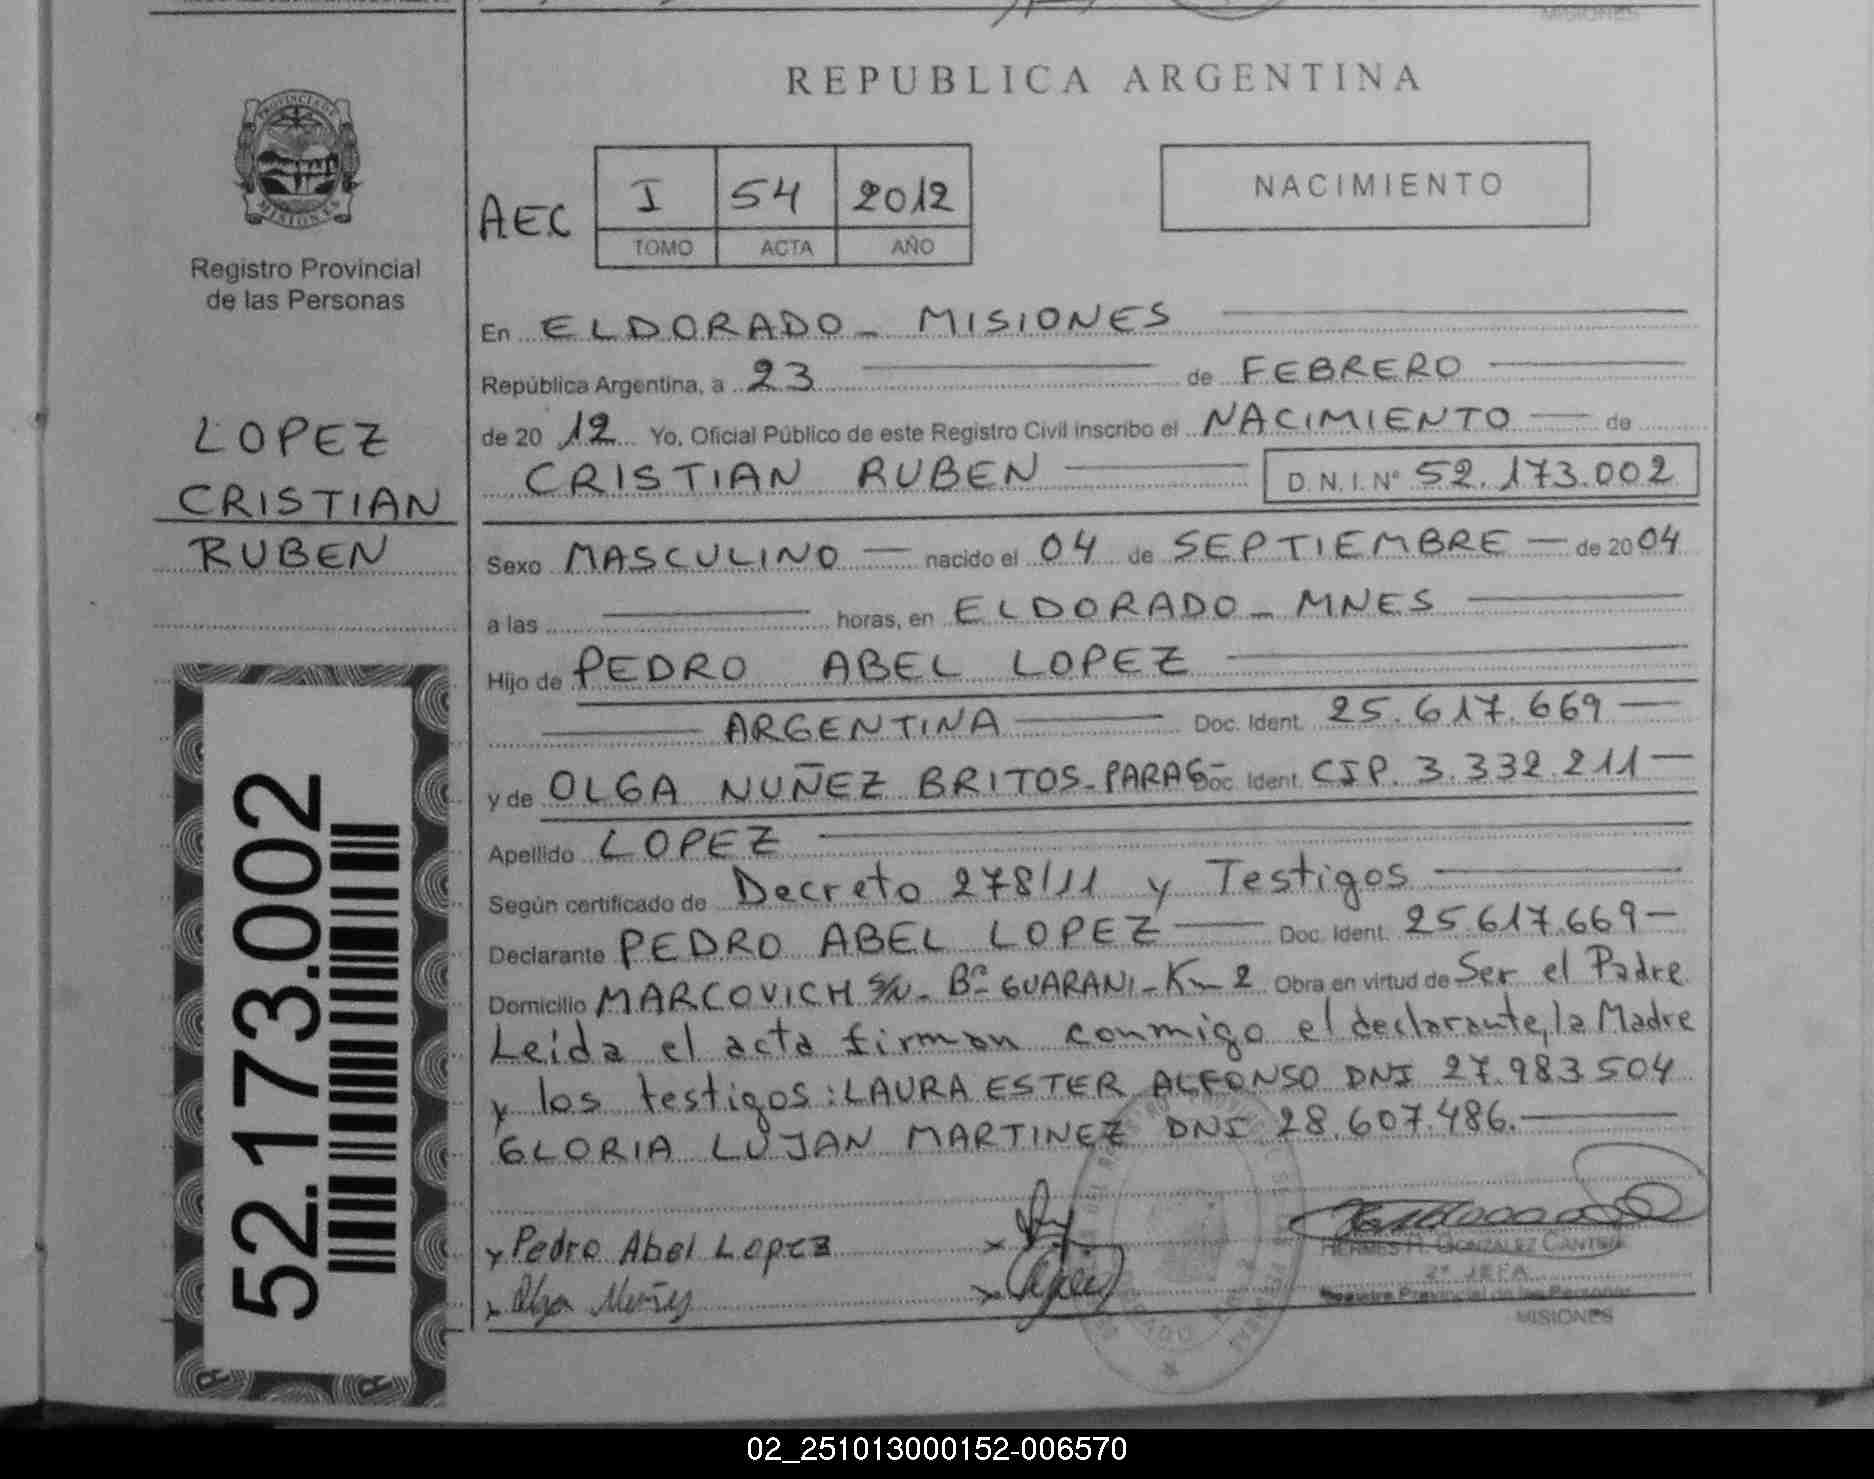 MISIONES
REPUBLICA ARGENTINA
PROVINCIA DE
MISIONES
Registro Provincial
de las Personas
LOPEZ
CRISTIAN
RUBEN
52.173.002
AEC
I 54 2012
TOMO ACTA AÑO
NACIMIENTO
En ELDORADO - MISIONES
República Argentina, a 23 de FEBRERO
de 20 12 Yo, Oficial Público de este Registro Civil inscribo el NACIMIENTO de
CRISTIAN RUBEN D.N.I. Nº 52.173.002
Sexo MASCULINO nacido el 04 de SEPTIEMBRE de 2004
a las horas, en ELDORADO - MNES
Hijo de PEDRO ABEL LOPEZ
ARGENTINA Doc. Ident. 25.617.669
y de OLGA NUÑEZ BRITOS - PARAG- Doc. Ident. CIP. 3.332.211
Apellido LOPEZ
Según certificado de Decreto 278/11 y Testigos
Declarante PEDRO ABEL LOPEZ Doc. Ident. 25.617.669
Domicilio MARCOVICH S/N - Bº GUARANI - Km 2 Obra en virtud de Ser el Padre
Leida el acta firman conmigo el declarante, la Madre
y los testigos: LAURA ESTER ALFONSO DNI 27.983.504
GLORIA LUJAN MARTINEZ DNI 28.607.486.
x Pedro Abel Lopez x
x Olga Nuñez x
HERMES R. GONZALEZ CANTERO
2º JEFA
Registro Provincial de las Personas
MISIONES
02_251013000152-006570